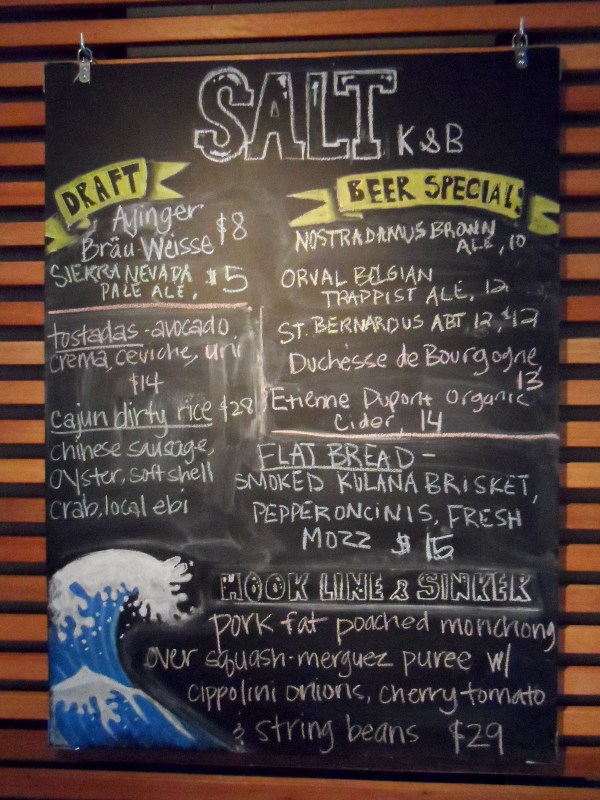 SALT K&B
DRAFT
Ayinger
Bräu-Weisse $8
SIERRA NEVADA
PALE ALE, $5
tostadas - avocado
crema, ceviche, uni
$14
cajun dirty rice $28
chinese sausage,
oyster, soft shell
crab, local ebi
BEER SPECIALS
NOSTRADAMUS BROWN
ALE, 10
ORVAL BELGIAN
TRAPPIST ALE, 12
ST. BERNARDUS ABT 12, $13
Duchesse de Bourgogne
13
Etienne Dupont Organic
Cider, 14
FLAT BREAD -
SMOKED KULANA BRISKET,
PEPPERONCINIS, FRESH
MOZZ $15
HOOK LINE & SINKER
pork fat poached monchong
over squash-merguez puree w/
cippolini onions, cherry tomato
& string beans $29